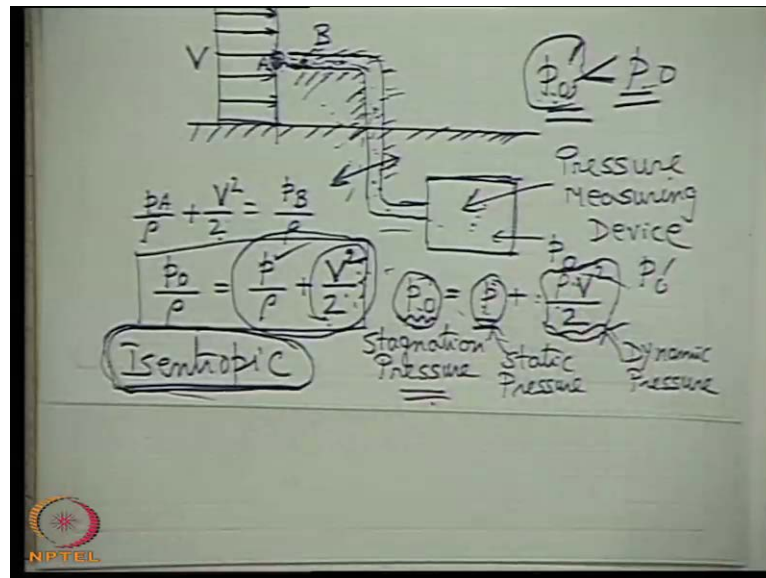 V
A
B
p₀' < p₀
Pressure
Measuring
Device
p_A/ρ + V²/2 = p_B/ρ
p₀
p₀'
p₀/ρ = p/ρ + V²/2
p₀ = p + ρV²/2
Isentropic
Stagnation
Pressure
Static
Pressure
Dynamic
Pressure
NPTEL